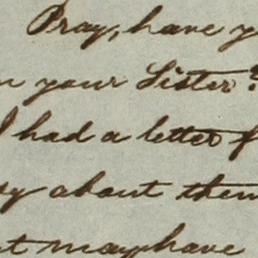 Pray, have y
your Sister?
I had a letter f
about them
may have